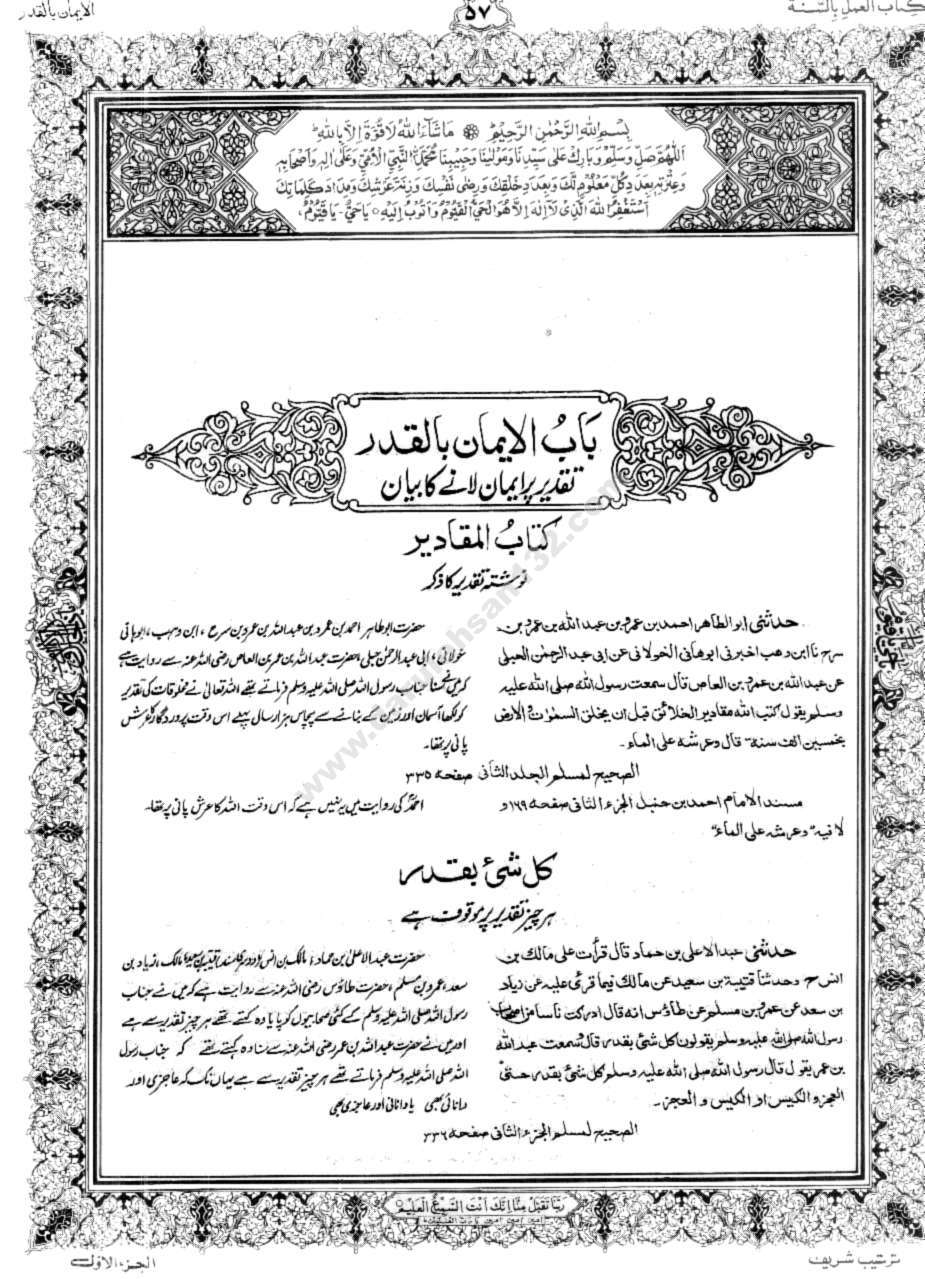 کتاب العمل بالسّنة
۵۷
الایمان بالقدر
بِسْمِ اللهِ الرَّحْمٰنِ الرَّحِيْمِ ماشَآءَ اللهُ لَا قُوَّةَ اِلَّا بِاللهِ
اَللّٰهُمَّ صَلِّ وَسَلِّمْ وَبَارِكْ عَلٰى سَيِّدِنَا وَمَوْلٰينَا وَحَبِيْبِنَا مُحَمَّدِ النَّبِيِّ الْاُمِّيِّ وَعَلٰى اٰلِهٖ وَاَصْحَابِهٖ
وَعِتْرَتِهٖ بِعَدَدِ كُلِّ مَعْلُوْمٍ لَّكَ وَبِعَدَدِ خَلْقِكَ وَرِضٰى نَفْسِكَ وَزِنَةِ عَرْشِكَ وَمِدَادِ كَلِمَاتِكَ
اَسْتَغْفِرُ اللهَ الَّذِىْ لَآ اِلٰهَ اِلَّا هُوَ الْحَىُّ الْقَيُّوْمُ وَاَتُوْبُ اِلَيْهِ يَا حَىُّ يَا قَيُّوْمُ
بَابُ الایمان بالقدر
تقدیر پر ایمان لانے کا بیان
کتابُ المقادیر
نوشتہ تقدیر کا ذکر
حدثنی ابو الطاهر احمد بن عمرو بن عبد الله بن عمرو بن
سرح نا ابن وهب اخبرنی ابو هانی الخولانی عن ابی عبد الرحمٰن الحبلی
عن عبد الله بن عمرو بن العاص قال سمعت رسول الله صلی الله علیه
وسلم یقول کتب الله مقادیر الخلائق قبل ان یخلق السمٰوٰت والارض
بخمسین الف سنة قال وعرشه علی الماء۔
حضرت ابو طاہر احمد بن عمرو بن عبد اللہ بن عمرو بن سرح ، ابن وہب ، ابو ہانی
خولانی ، ابی عبد الرحمٰن حبلی ، حضرت عبد اللہ بن عمر بن العاص رضی اللہ عنہ سے روایت ہے
کہ میں نے سنا جناب رسول اللہ صلی اللہ علیہ وسلم فرماتے تھے اللہ تعالیٰ نے مخلوقات کی تقدیر
کو لکھا آسمان اور زمین کے بنانے سے پچاس ہزار سال پہلے اس وقت پروردگار کا عرش
پانی پر تھا۔
الصحیح لمسلم الجلد الثانی صفحہ ۳۳۵
مسند الامام احمد بن حنبل الجزء الثانی صفحہ ۱۶۹ و
لا فیه "وعرشه علی الماء"
احمدؒ کی روایت میں یہ نہیں ہے کہ اس وقت اللہ کا عرش پانی پر تھا۔
کل شیٔ بقدر
ہر چیز تقدیر پر موقوف ہے
حدثنی عبد الاعلی بن حماد قال قرأت علی مالك بن
انس ح وحدثنا قتیبة بن سعید عن مالك فیما قرئ علیه عن زیاد
بن سعد عن عمرو بن مسلم عن طاؤس انه قال ادرکت ناسا من اصحاب
رسول الله صلی الله علیه وسلم یقولون کل شیٔ بقدر قال وسمعت عبد الله
بن عمر یقول قال رسول الله صلی الله علیه وسلم کل شیٔ بقدر حتیٰ
العجز والکیس او الکیس و العجز۔
حضرت عبد الاعلیٰ بن حماد ، مالک بن انس قتیبہ بن سعید مالک ، زیاد بن
سعد ، عمرو بن مسلم ، حضرت طاؤس رضی اللہ عنہ سے روایت ہے کہ میں نے جناب
رسول اللہ صلی اللہ علیہ وسلم کے کئی صحابیوں کو پایا وہ کہتے تھے ہر چیز تقدیر سے ہے
اور میں نے حضرت عبد اللہ بن عمر رضی اللہ عنہ سے سنا وہ کہتے تھے کہ جناب رسول
اللہ صلی اللہ علیہ وسلم فرماتے تھے ہر چیز تقدیر سے ہے یہاں تک کہ عاجزی اور
دانائی بھی یا دانائی اور عاجزی بھی
الصحیح لمسلم الجزء الثانی صفحہ ۳۳۶
رَبَّنَا تَقَبَّلْ مِنَّا اِنَّكَ اَنْتَ السَّمِيْعُ الْعَلِيْمُ
ترتیب شریف
الجزء الاوّل